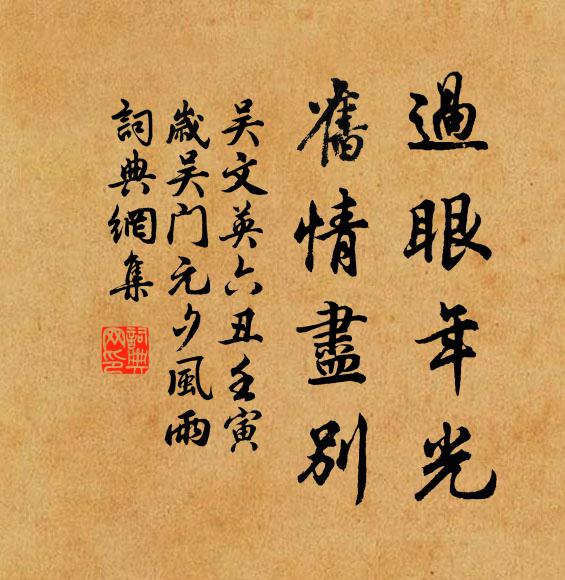 過眼年光
舊情盡別
吴文英六丑壬寅
嵗吴门元夕風雨
詞典網集
詞典網印